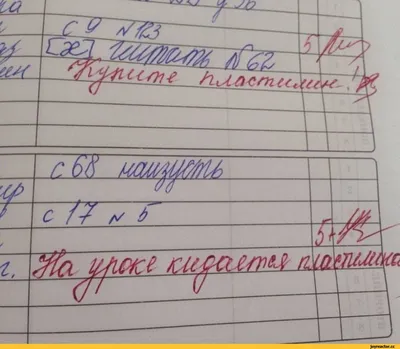 с 9 № 123
[х] читать № 62 5
Купите пластилин!
с 68 наизусть
с 17 № 5
5+
На уроке кидается пластилино
joyreactor.cc